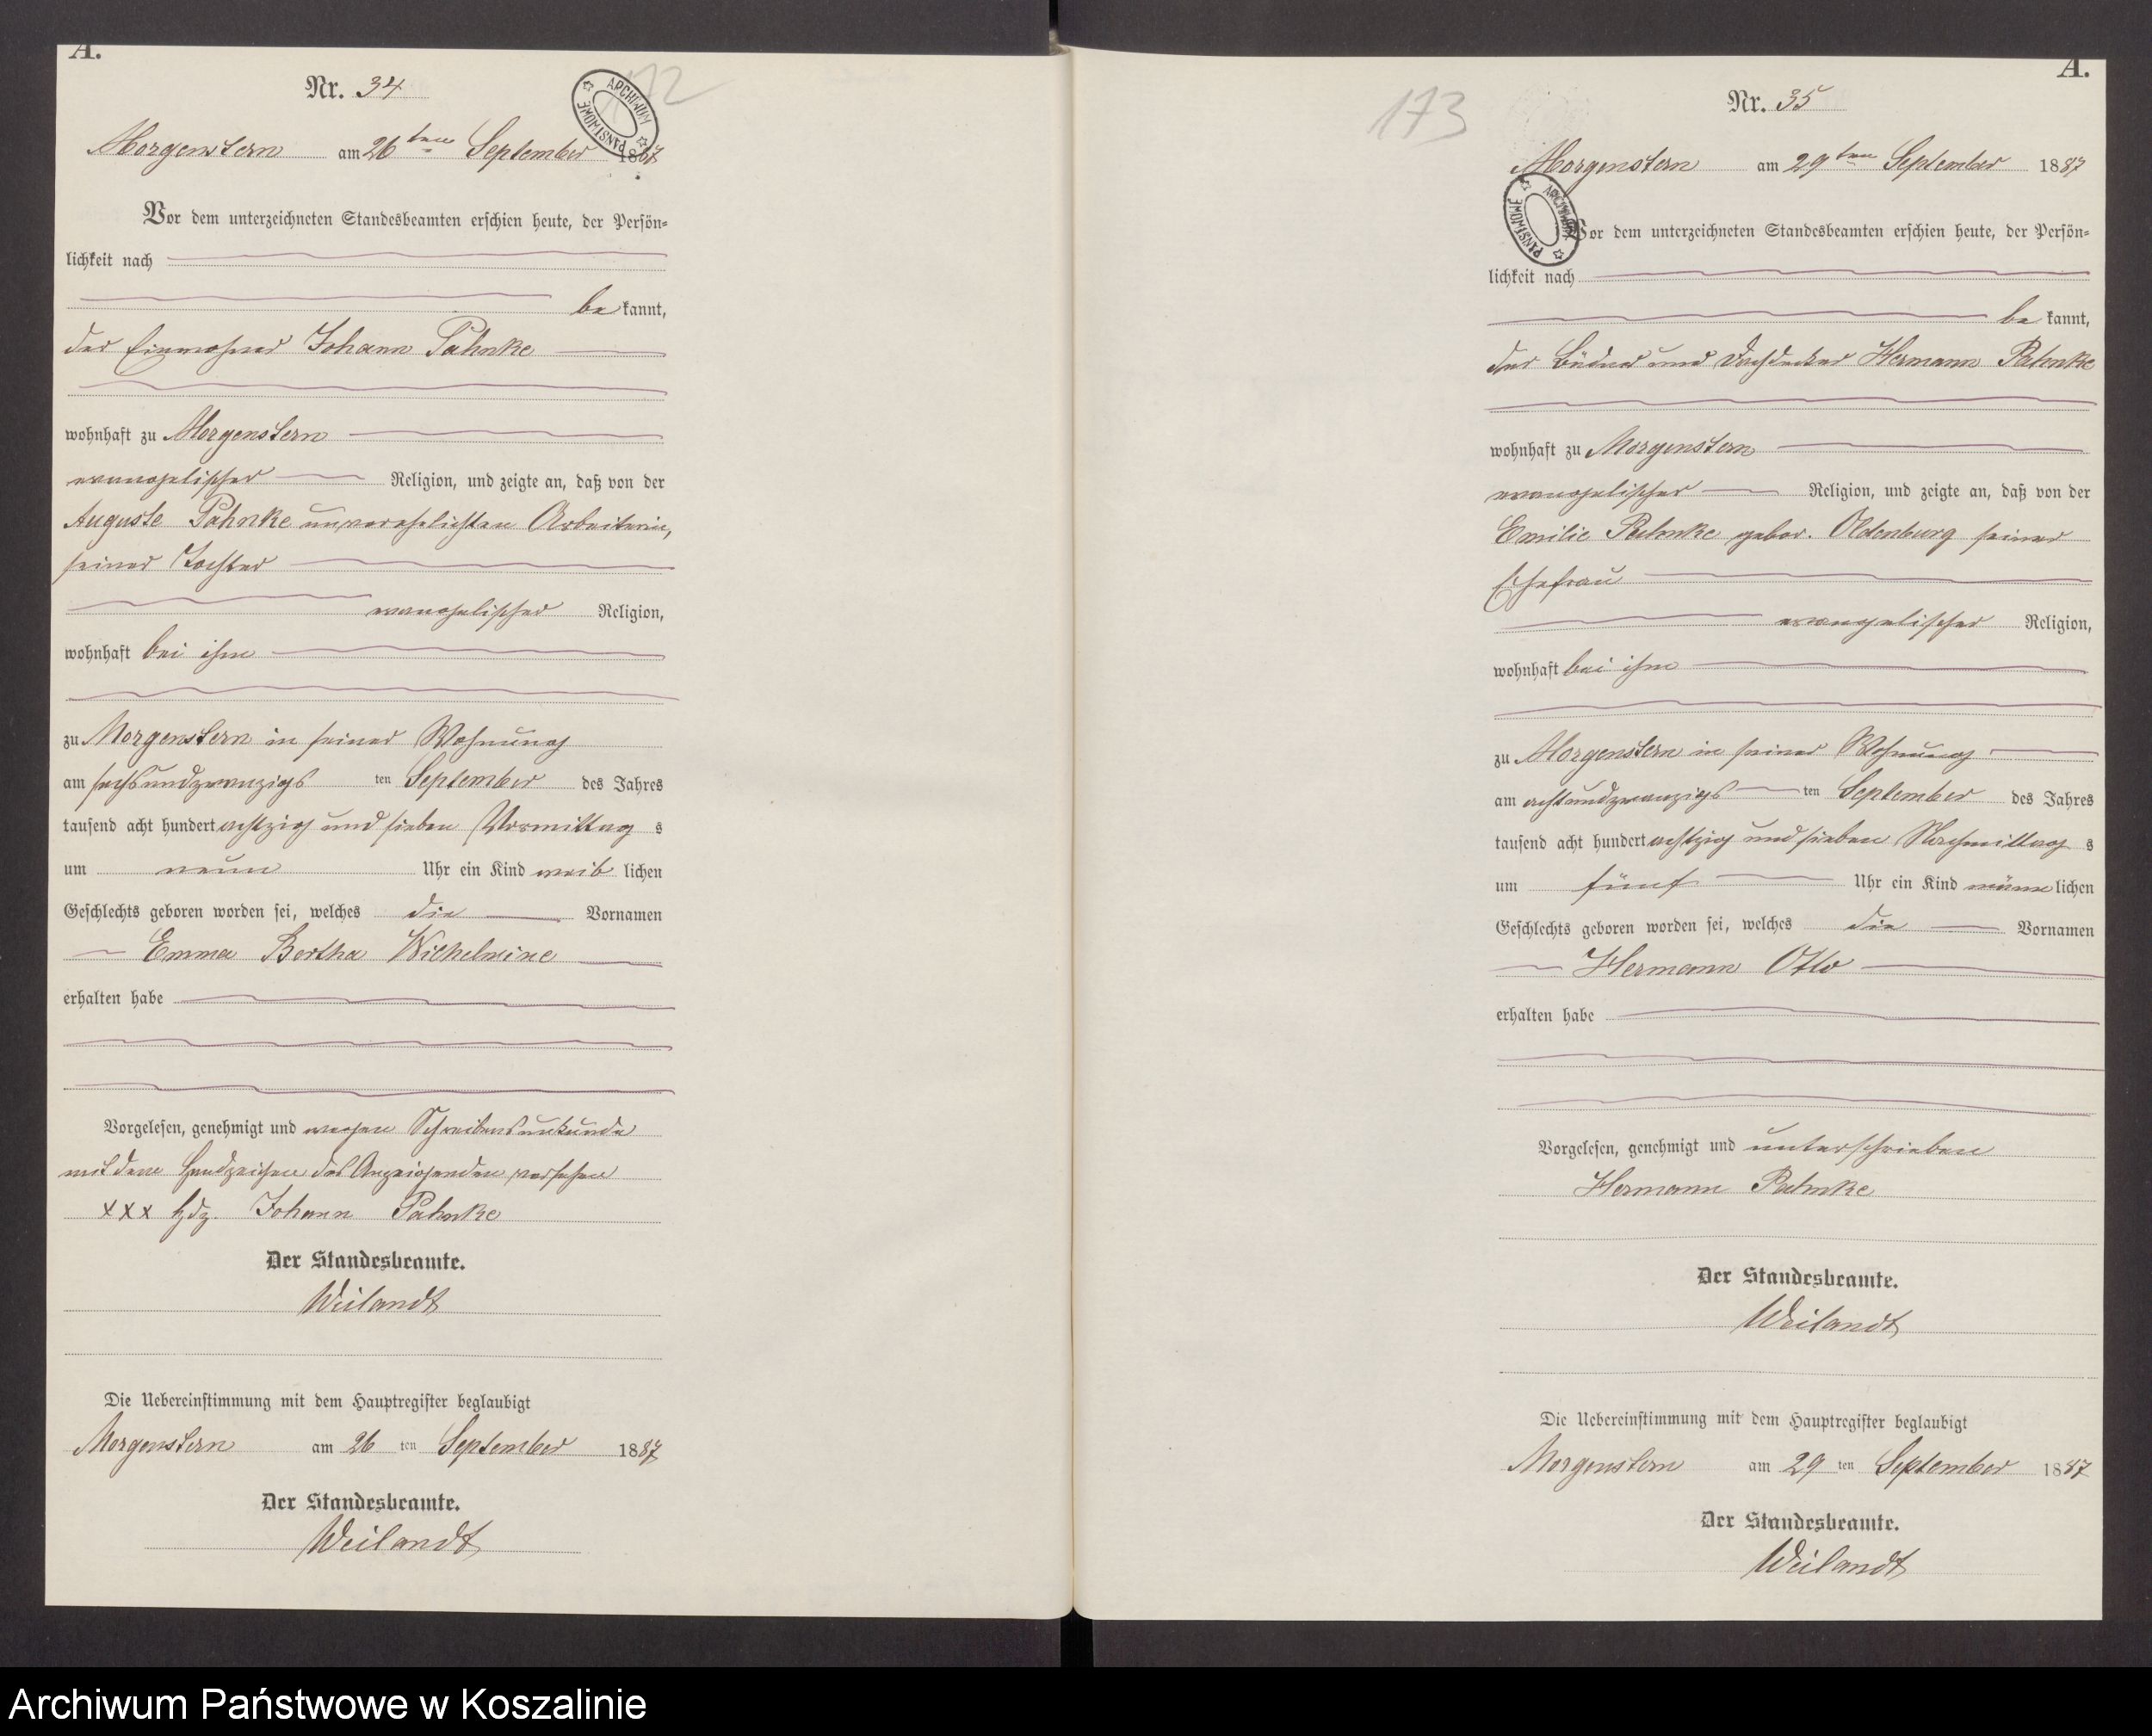 A.
Nr. 34
172
ARCHIWUM PAŃSTWOWE
Morgenstern am 26ten September 1887
Vor dem unterzeichneten Standesbeamten erschien heute, der Persön-
lichkeit nach
be kannt,
der Einwohner Johann Pahnke
wohnhaft zu Morgenstern
evangelischer Religion, und zeigte an, daß von der
Auguste Pahnke unverehelichten Arbeiterin,
seiner Tochter
evangelischer Religion,
wohnhaft bei ihm
zu Morgenstern in seiner Wohnung
am sechsundzwanzigs ten September des Jahres
tausend acht hundert achtzig und sieben Vormittag s
um neun Uhr ein Kind weib lichen
Geschlechts geboren worden sei, welches die Vornamen
Emma Bertha Wilhelmine
erhalten habe
Vorgelesen, genehmigt und wegen Schreibensunkunde
mit dem Handzeichen des Anzeigenden versehen
xxx Hdz. Johann Pahnke
Der Standesbeamte.
Weilandt
Die Uebereinstimmung mit dem Hauptregister beglaubigt
Morgenstern am 26 ten September 1887
Der Standesbeamte.
Weilandt
A.
Nr. 35
173
Morgenstern am 29ten September 1887
ARCHIWUM PAŃSTWOWE
Vor dem unterzeichneten Standesbeamten erschien heute, der Persön-
lichkeit nach
be kannt,
der Büdner und Dachdecker Hermann Pahnke
wohnhaft zu Morgenstern
evangelischer Religion, und zeigte an, daß von der
Emilie Pahnke gebor. Oldenburg seiner
Ehefrau
evangelischer Religion,
wohnhaft bei ihm
zu Morgenstern in seiner Wohnung
am achtundzwanzigs ten September des Jahres
tausend acht hundert achtzig und sieben Nachmittag s
um fünf Uhr ein Kind männ lichen
Geschlechts geboren worden sei, welches die Vornamen
Hermann Otto
erhalten habe
Vorgelesen, genehmigt und unterschrieben
Hermann Pahnke
Der Standesbeamte.
Weilandt
Die Uebereinstimmung mit dem Hauptregister beglaubigt
Morgenstern am 29 ten September 1887
Der Standesbeamte.
Weilandt
Archiwum Państwowe w Koszalinie